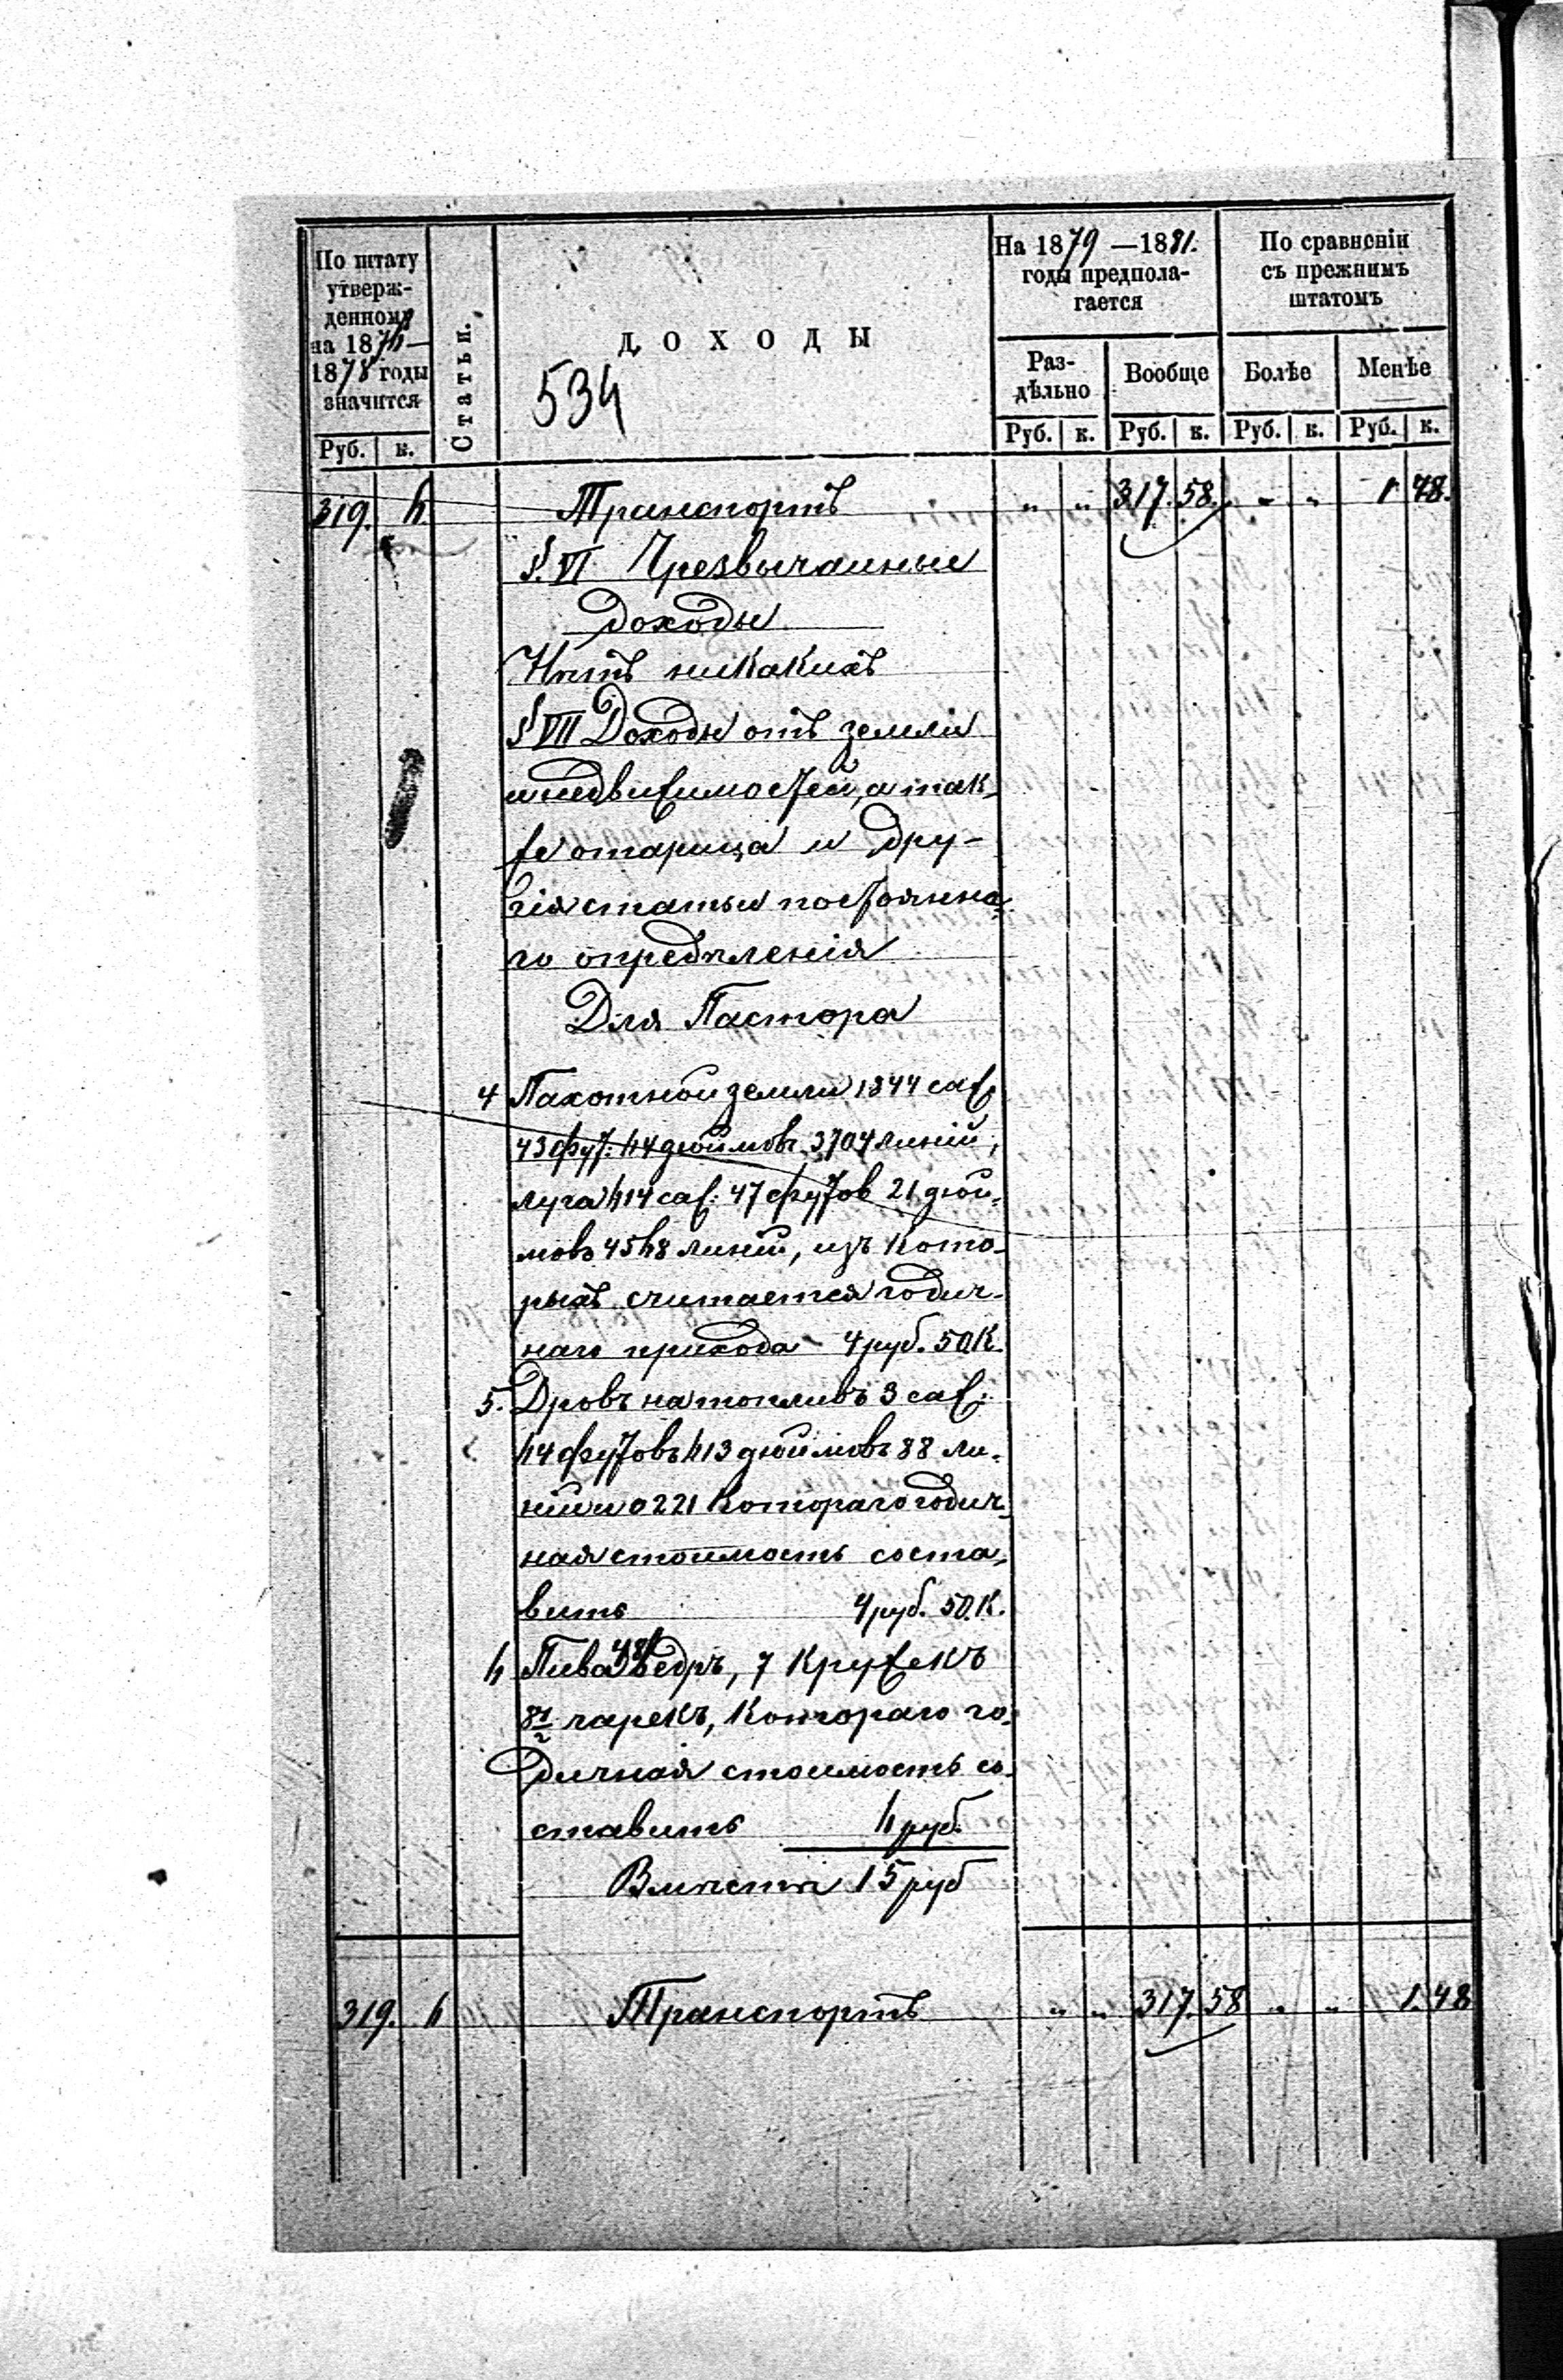 По штату утверж-
денному
на 1876—
1878 годы
значится
Руб. к.
Статьи.
ДОХОДЫ
534
На 1879—1881.
годы предпола-
гается
Раз-
дѣльно
Вообще
Руб. к. Руб. к.
По сравненіи
съ прежнимъ
штатомъ
Болѣе Менѣе
Руб. к. Руб. к.
319. 6 Транспортъ „ „ 317. 58. „ „ 1 48.
§. VI Чрезвычаиные
доходы
Нѣтъ никакихъ
§ VII Доходы отъ земли
и недвижимостей, а так-
же и другія
гія статьи постоянна-
го опредѣленія
Для Пастора
4 Пахотной земли 1844 саж,
43 фут. 64 дюймовъ. 3704 линій,
луга 614 саж: 47 футов 21 дюй-
мовъ 4568 линій, изъ кото-
рыхъ считается годич-
наго прихода - 4 руб. 50 К.
5. Дровъ на топливъ 3 саж:
64 футовъ 613 дюймовъ 88 ли-
ній и 0221 котораго годич-
ная стоимость соста-
витъ 4 руб. 50. К.
6 Пива 48 ведръ, 7 кружекъ
8½ чарекъ, котораго го-
дичная стоимость со-
ставитъ 6 руб.
Вмѣстѣ 15 руб
319. 6 Транспортъ „ „ 317. 58 „ „ 1. 48